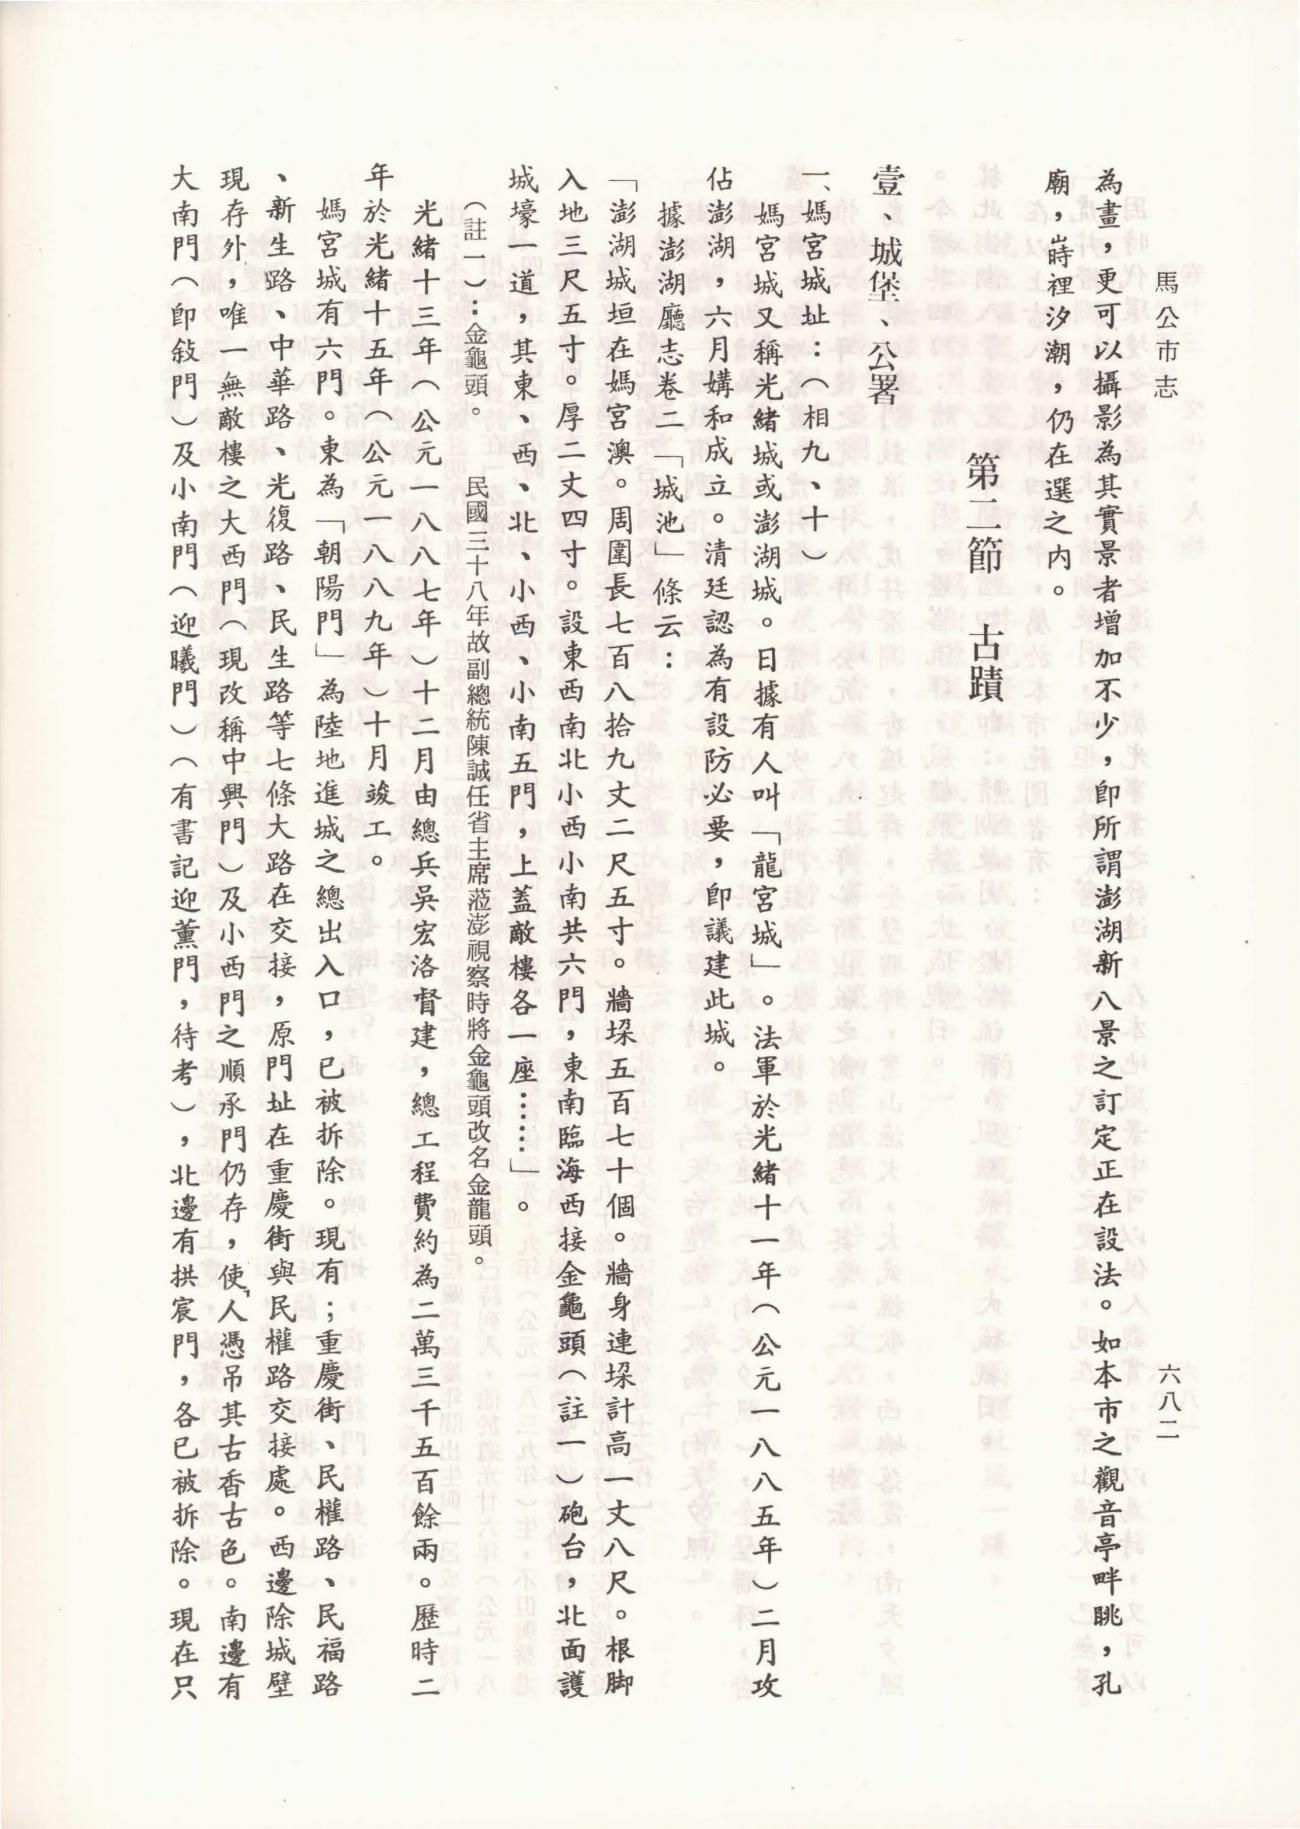 馬公市志
六八二
為畫，更可以攝影為其實景者增加不少，即所謂澎湖新八景之訂定正在設法。如本市之觀音亭畔眺，孔
廟，嵵裡汐潮，仍在選之內。
第二節　古蹟
壹、城堡、公署
一、媽宮城址：（相九、十）
媽宮城又稱光緒城或澎湖城。日據有人叫「龍宮城」。法軍於光緒十一年（公元一八八五年）二月攻
佔澎湖，六月媾和成立。清廷認為有設防必要，即議建此城。
據澎湖廳志卷二「城池」條云：
「澎湖城垣在媽宮澳。周圍長七百八拾九丈二尺五寸。牆垛五百七十個。牆身連垛計高一丈八尺。根脚
入地三尺五寸。厚二丈四寸。設東西南北小西小南共六門，東南臨海西接金龜頭（註一）砲台，北面護
城壕一道，其東、西、北、小西、小南五門，上蓋敵樓各一座……」。
（註一）：金龜頭。　民國三十八年故副總統陳誠任省主席蒞澎視察時將金龜頭改名金龍頭。
光緒十三年（公元一八八七年）十二月由總兵吳宏洛督建，總工程費約為二萬三千五百餘兩。歷時二
年於光緒十五年（公元一八八九年）十月竣工。
媽宮城有六門。東為「朝陽門」為陸地進城之總出入口，已被拆除。現有；重慶街、民權路、民福路
、新生路、中華路、光復路、民生路等七條大路在交接，原門址在重慶街與民權路交接處。西邊除城壁
現存外，唯一無敵樓之大西門（現改稱中興門）及小西門之順承門仍存，使人憑吊其古香古色。南邊有
大南門（即敍門）及小南門（迎曦門）（有書記迎薰門，待考），北邊有拱宸門，各已被拆除。現在只